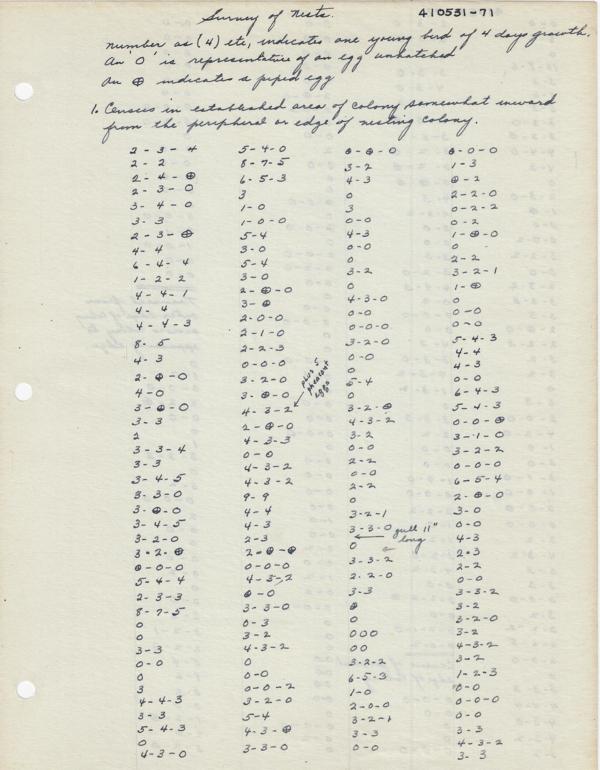 Survey of Nests.
410531-71
number as (4) etc, indicates one young bird of 4 days growth.
An 'O' is representative of an egg unhatched
An ⊕ indicates a piped egg
1. Census in established area of colony somewhat inward
from the peripheral or edge of nesting colony.
2-3-4
2-2
2-4-⊕
2-3-0
3-4-0
3-3
2-3-⊕
4-4
6-4-4
1-2-2
4-4-1
4-4
4-4-3
8-5
4-3
2-⊕-0
4-0
3-⊕-0
3-3
2
3-3-4
3-3
3-4-5
3-3-0
3-⊕-0
3-4-5
3-2-0
3-2-⊕
⊕-0-0
5-4-4
2-3-3
8-7-5
0
0
3-3
0-0
0
3
4-4-3
3-3
5-4-3
0
4-3-0
5-4-0
8-7-5
6-5-3
3
1-0
1-0-0
5-4
3-0
5-4
3-0
2-⊕-0
3-⊕
2-0-0
2-1-0
2-2-3
0-0-0
3-2-0
3-⊕-0
4-3-2
plus 5
pheasant
eggs
2-⊕-0
4-3-3
0-0
4-3-2
4-3-2
9-9
4-4
4-3
2-3
2-⊕-⊕
0-0-0
4-3-2
⊕-0
3-3-0
0-3
3-2
4-3-2
0
0-0
0-0-2
3-2-0
5-4
4-3-⊕
3-3-0
⊕-⊕-0
3-2
4-3
0
3
0-0
4-3
0-0
0
3-2
0
4-3-0
0-0
0-0-0
3-2-0
0-0
0
5-4
0
3-2-⊕
4-3-2
3-2
0-0
2-2
0-0
2-2
0
3-2-1
3-3-0
gull 11"
long
0
3-3-2
2-2-0
3-3
⊕
0
000
00
3-2-2
6-5-3
1-0
2-0-0
3-2-1
3-3
0-0
⊕-0-0
1-3
⊕-2
2-2-0
0-2-2
0-2
1-⊕-0
0
2-2
3-2-1
1-⊕
0
0-0
0-0
5-4-3
4-4
4-3
0-0
6-4-3
5-4-3
0-0-⊕
3-1-0
3-2-2
0-0-0
6-5-4
2-⊕-0
3-0
0-0
4-3
2-3
2-2
0-0
3-3-2
3-2
3-2-0
3-2
4-3-2
3-2
1-2-3
0-0
0-0-0
0-0
3-3
4-3-2
3-3